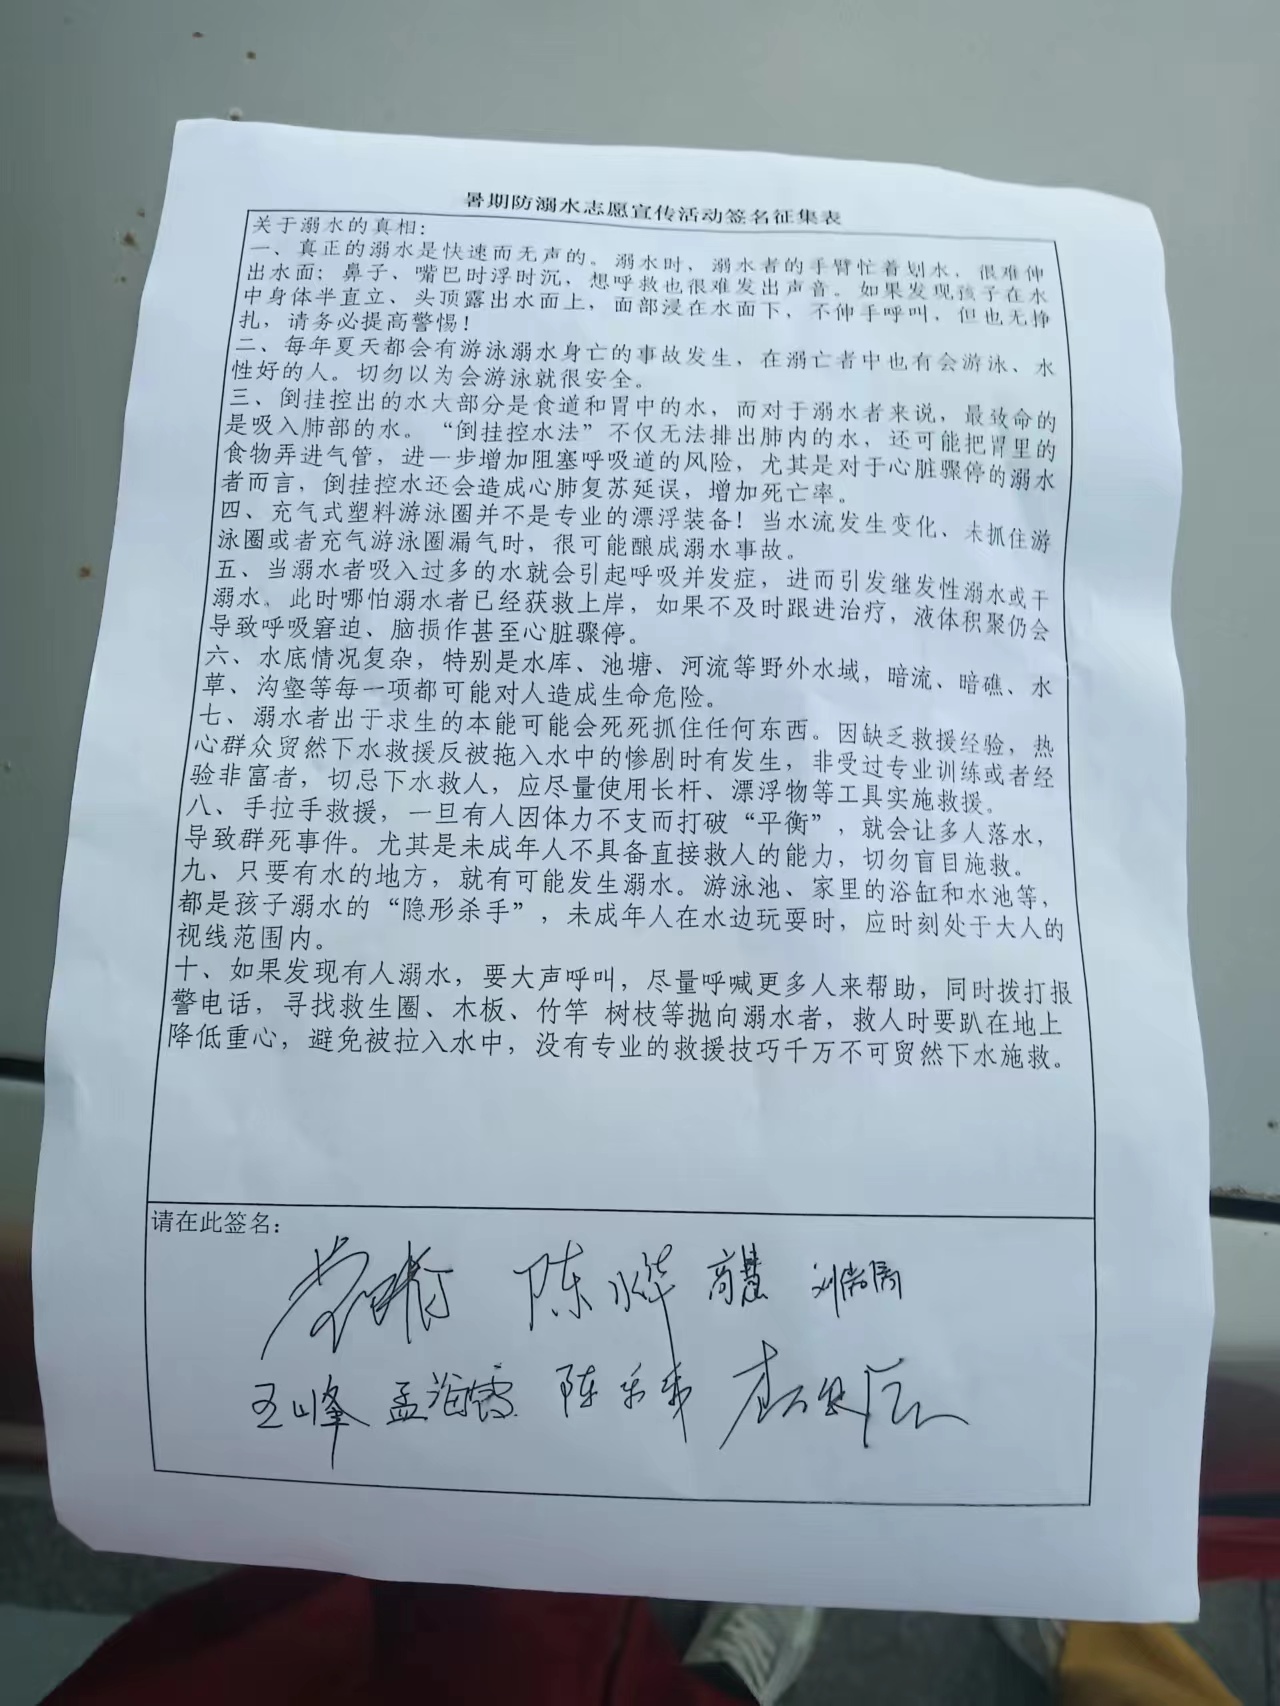 暑期防溺水志愿宣传活动签名征集表
关于溺水的真相：
一、真正的溺水是快速而无声的。溺水时，溺水者的手臂忙着划水，很难伸
出水面；鼻子、嘴巴时浮时沉，想呼救也很难发出声音。如果发现孩子在水
中身体半直立、头顶露出水面上，面部浸在水面下，不伸手呼叫，但也无挣
扎，请务必提高警惕！
二、每年夏天都会有游泳溺水身亡的事故发生，在溺亡者中也有会游泳、水
性好的人。切勿以为会游泳就很安全。
三、倒挂控出的水大部分是食道和胃中的水，而对于溺水者来说，最致命的
是吸入肺部的水。“倒挂控水法”不仅无法排出肺内的水，还可能把胃里的
食物弄进气管，进一步增加阻塞呼吸道的风险，尤其是对于心脏骤停的溺水
者而言，倒挂控水还会造成心肺复苏延误，增加死亡率。
四、充气式塑料游泳圈并不是专业的漂浮装备！当水流发生变化、未抓住游
泳圈或者充气游泳圈漏气时，很可能酿成溺水事故。
五、当溺水者吸入过多的水就会引起呼吸并发症，进而引发继发性溺水或干
溺水。此时哪怕溺水者已经获救上岸，如果不及时跟进治疗，液体积聚仍会
导致呼吸窘迫、脑损作甚至心脏骤停。
六、水底情况复杂，特别是水库、池塘、河流等野外水域，暗流、暗礁、水
草、沟壑等每一项都可能对人造成生命危险。
七、溺水者出于求生的本能可能会死死抓住任何东西。因缺乏救援经验，热
心群众贸然下水救援反被拖入水中的惨剧时有发生，非受过专业训练或者经
验非富者，切忌下水救人，应尽量使用长杆、漂浮物等工具实施救援。
八、手拉手救援，一旦有人因体力不支而打破“平衡”，就会让多人落水，
导致群死事件。尤其是未成年人不具备直接救人的能力，切勿盲目施救。
九、只要有水的地方，就有可能发生溺水。游泳池、家里的浴缸和水池等，
都是孩子溺水的“隐形杀手”，未成年人在水边玩耍时，应时刻处于大人的
视线范围内。
十、如果发现有人溺水，要大声呼叫，尽量呼喊更多人来帮助，同时拨打报
警电话，寻找救生圈、木板、竹竿 树枝等抛向溺水者，救人时要趴在地上
降低重心，避免被拉入水中，没有专业的救援技巧千万不可贸然下水施救。
请在此签名：
陈烨 高慧
王峰